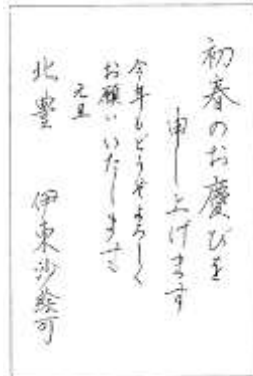 初春のお慶びを
申し上げます
今年もどうぞよろしく
お願いいたします
元旦
北豊 伊東沙絵可